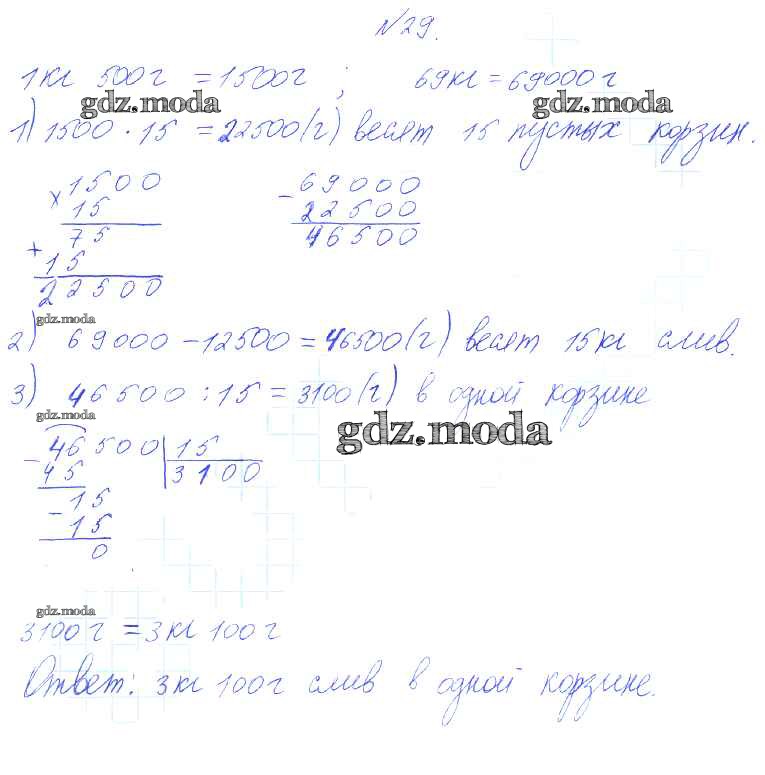 №29.
1кг 500г = 1500г ; 69кг = 69000г
gdz.moda gdz.moda
1) 1500 · 15 = 22500(г) весят 15 пустых корзин.
× 1500 - 69000
15 22500
75 46500
+ 15
22500
gdz.moda
2) 69000 - 12500 = 46500(г) весят 15кг слив.
3) 46500 : 15 = 3100(г) в одной корзине
gdz.moda
gdz.moda
- 46500 15
45 3100
- 15
15
0
gdz.moda
3100г = 3кг 100г
Ответ: 3кг 100г слив в одной корзине.